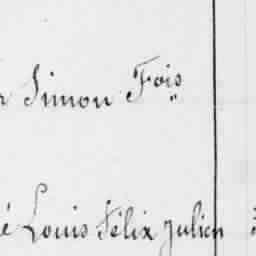 r Simon Fois
é Louis Félix Julien